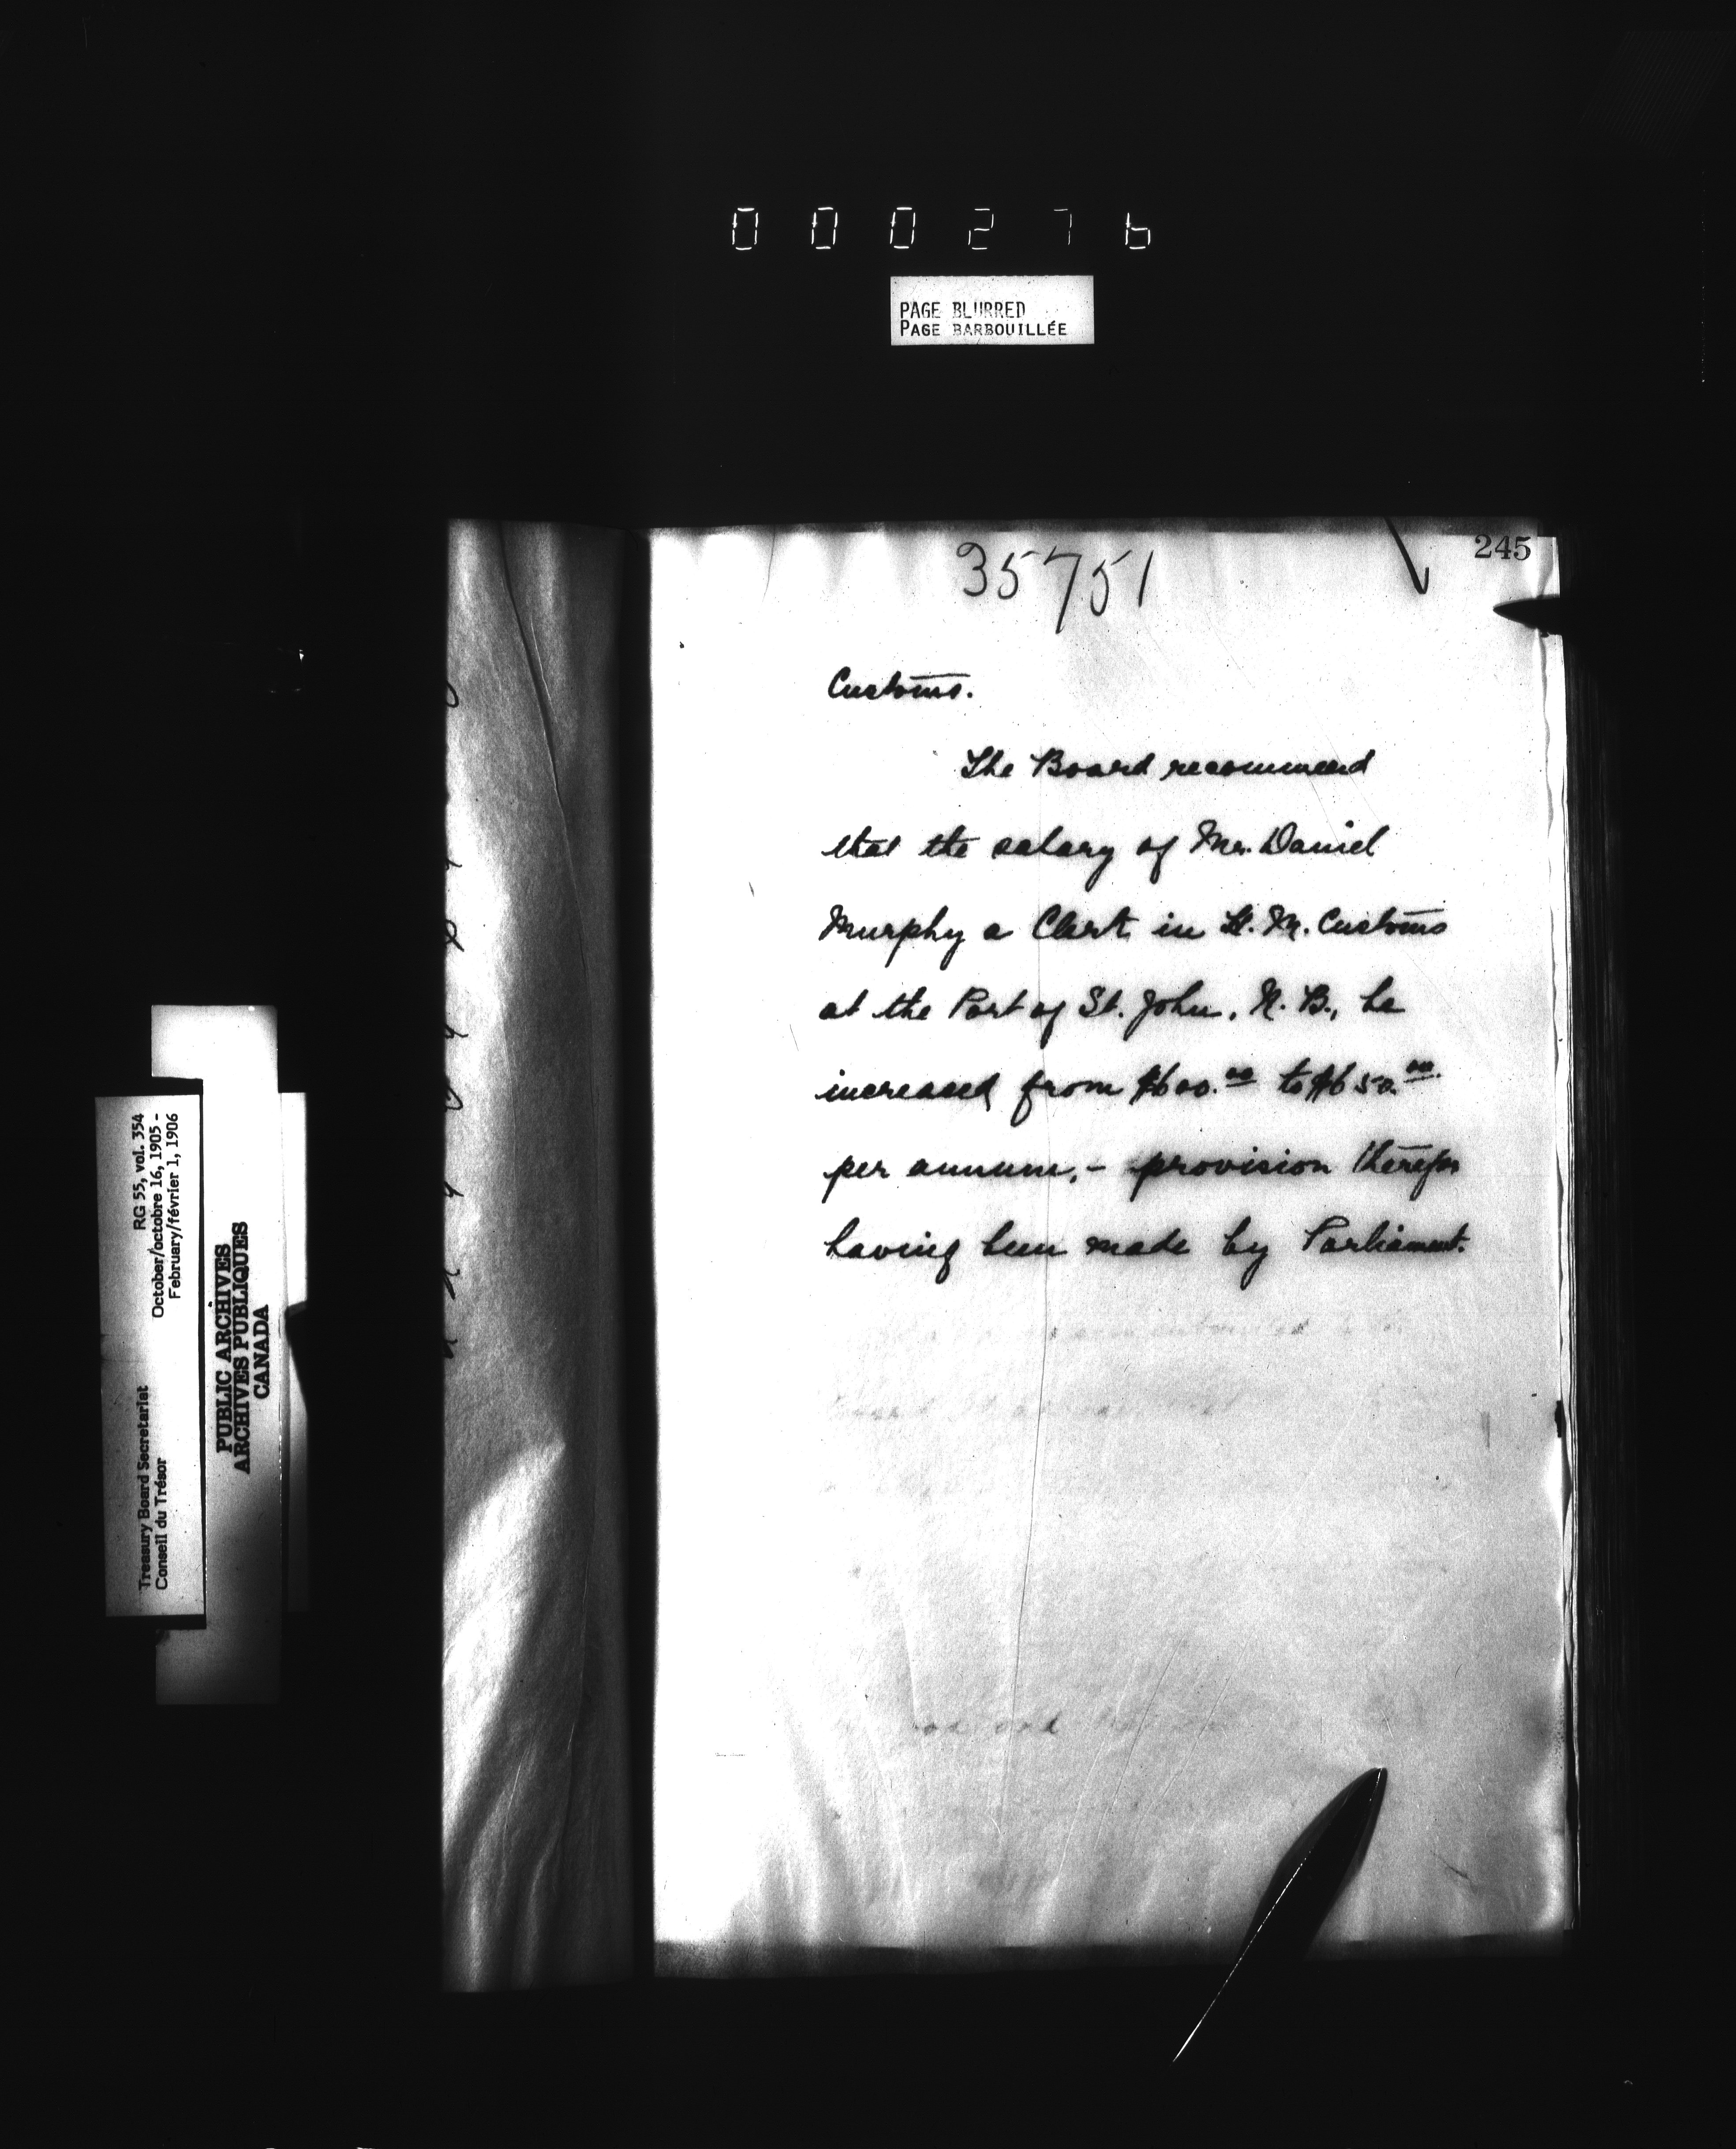 000276
PAGE BLURRED
PAGE BARBOUILLÉE
245
35751
Customs.
The Board recommend
that the salary of Mr. Daniel
Murphy a Clerk in H. M. Customs
at the Port of St. John, N. B., be
increased from $600.00 to $650.00
per annum, - provision therefor
having been made by Parliament.
Treasury Board Secretariat RG 55, vol. 354
Conseil du Trésor October/octobre 16, 1905 -
February/février 1, 1906
PUBLIC ARCHIVES
ARCHIVES PUBLIQUES
CANADA